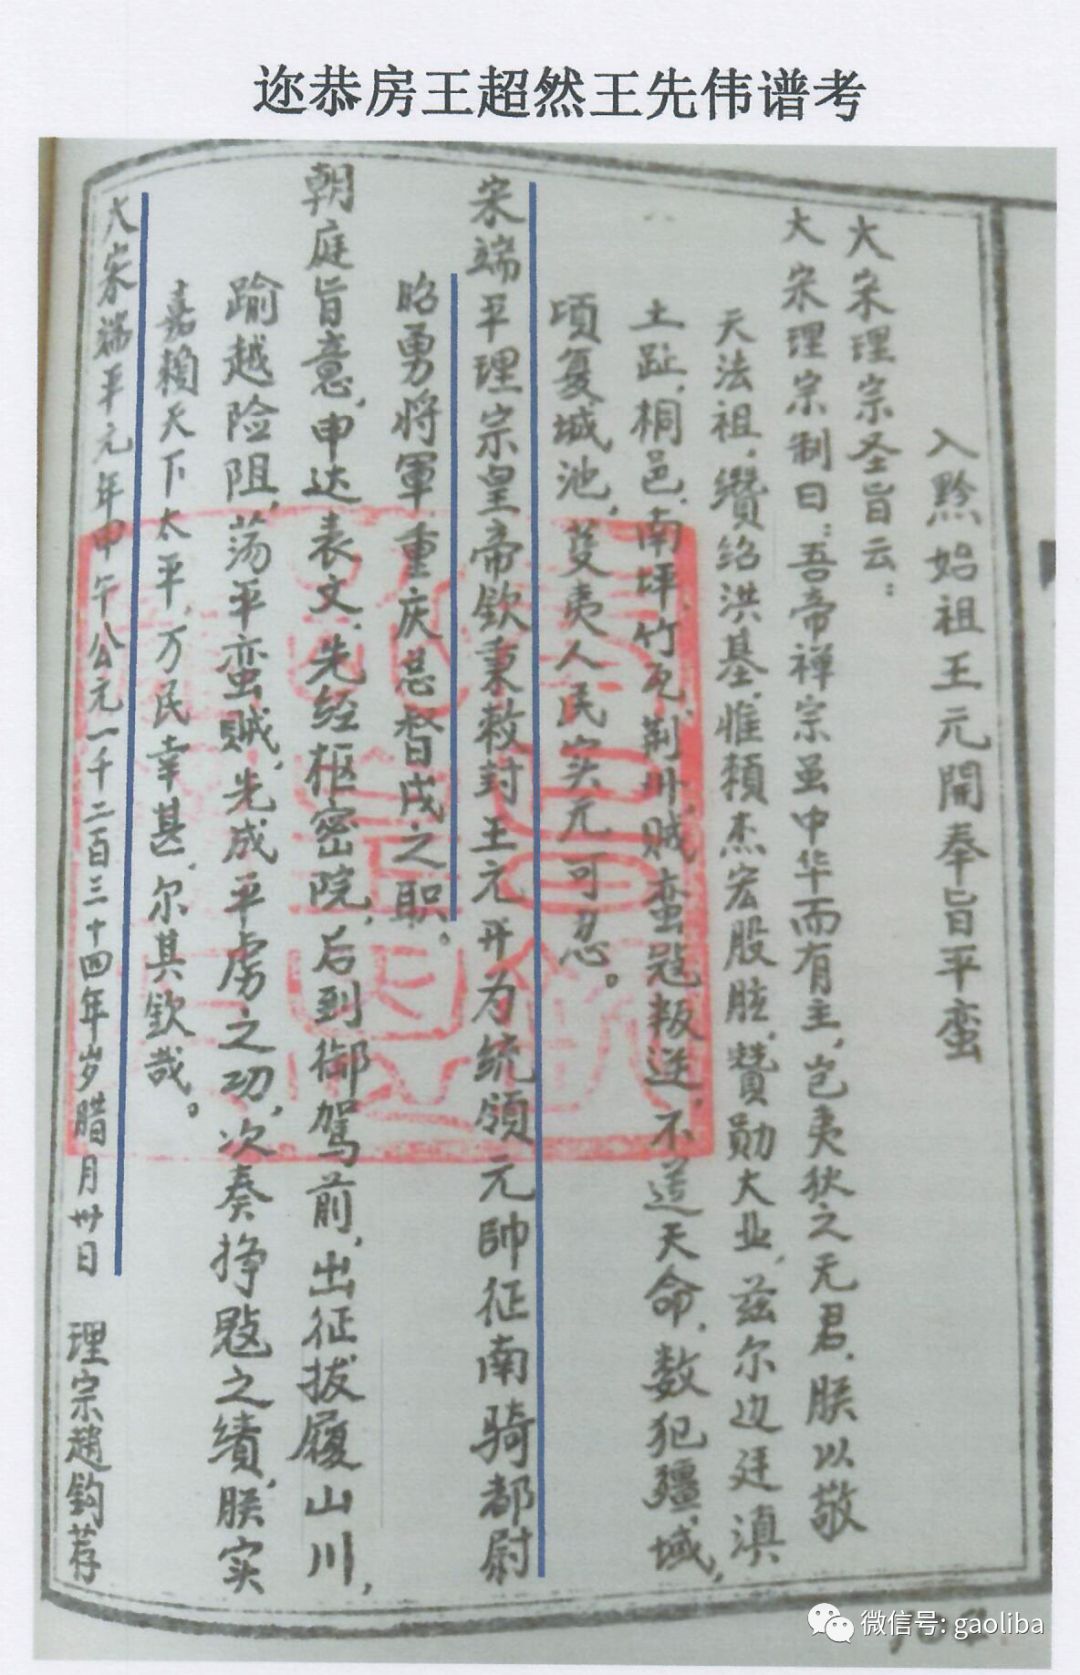 迩恭房王超然王先伟谱考
入黔始祖王元開奉旨平蛮
大宋理宗圣旨云：
大宋理宗制曰：吾帝禅宗虽中华而有主，岂夷狄之无君，朕以敬
天法祖，缵绍洪基，惟頼杰宏股肱，赞勋大业，兹尔边廷滇
土趾，桐邑，南坪，竹瓦，荆州，贼蛮冠叛逆，不遵天命，数犯疆域，
顷复城池，芟夷人民实元可忍。
宋端平理宗皇帝钦秉敕封王元开为统领元帥征南骑都尉
昭勇将軍重庆总督戍之职。
朝庭旨意，申达表文，先经枢密院，后到御驾前，出征拔履山川，
踰越险阻，荡平蛮贼，先成平虏之功，次奏挣尅之绩，朕实
嘉赖天下太平，万民幸甚，尔其钦哉。
大宋端平元年甲午公元一千二百三十四年岁腊月卅日 理宗趙鈞荐
微信号: gaoliba